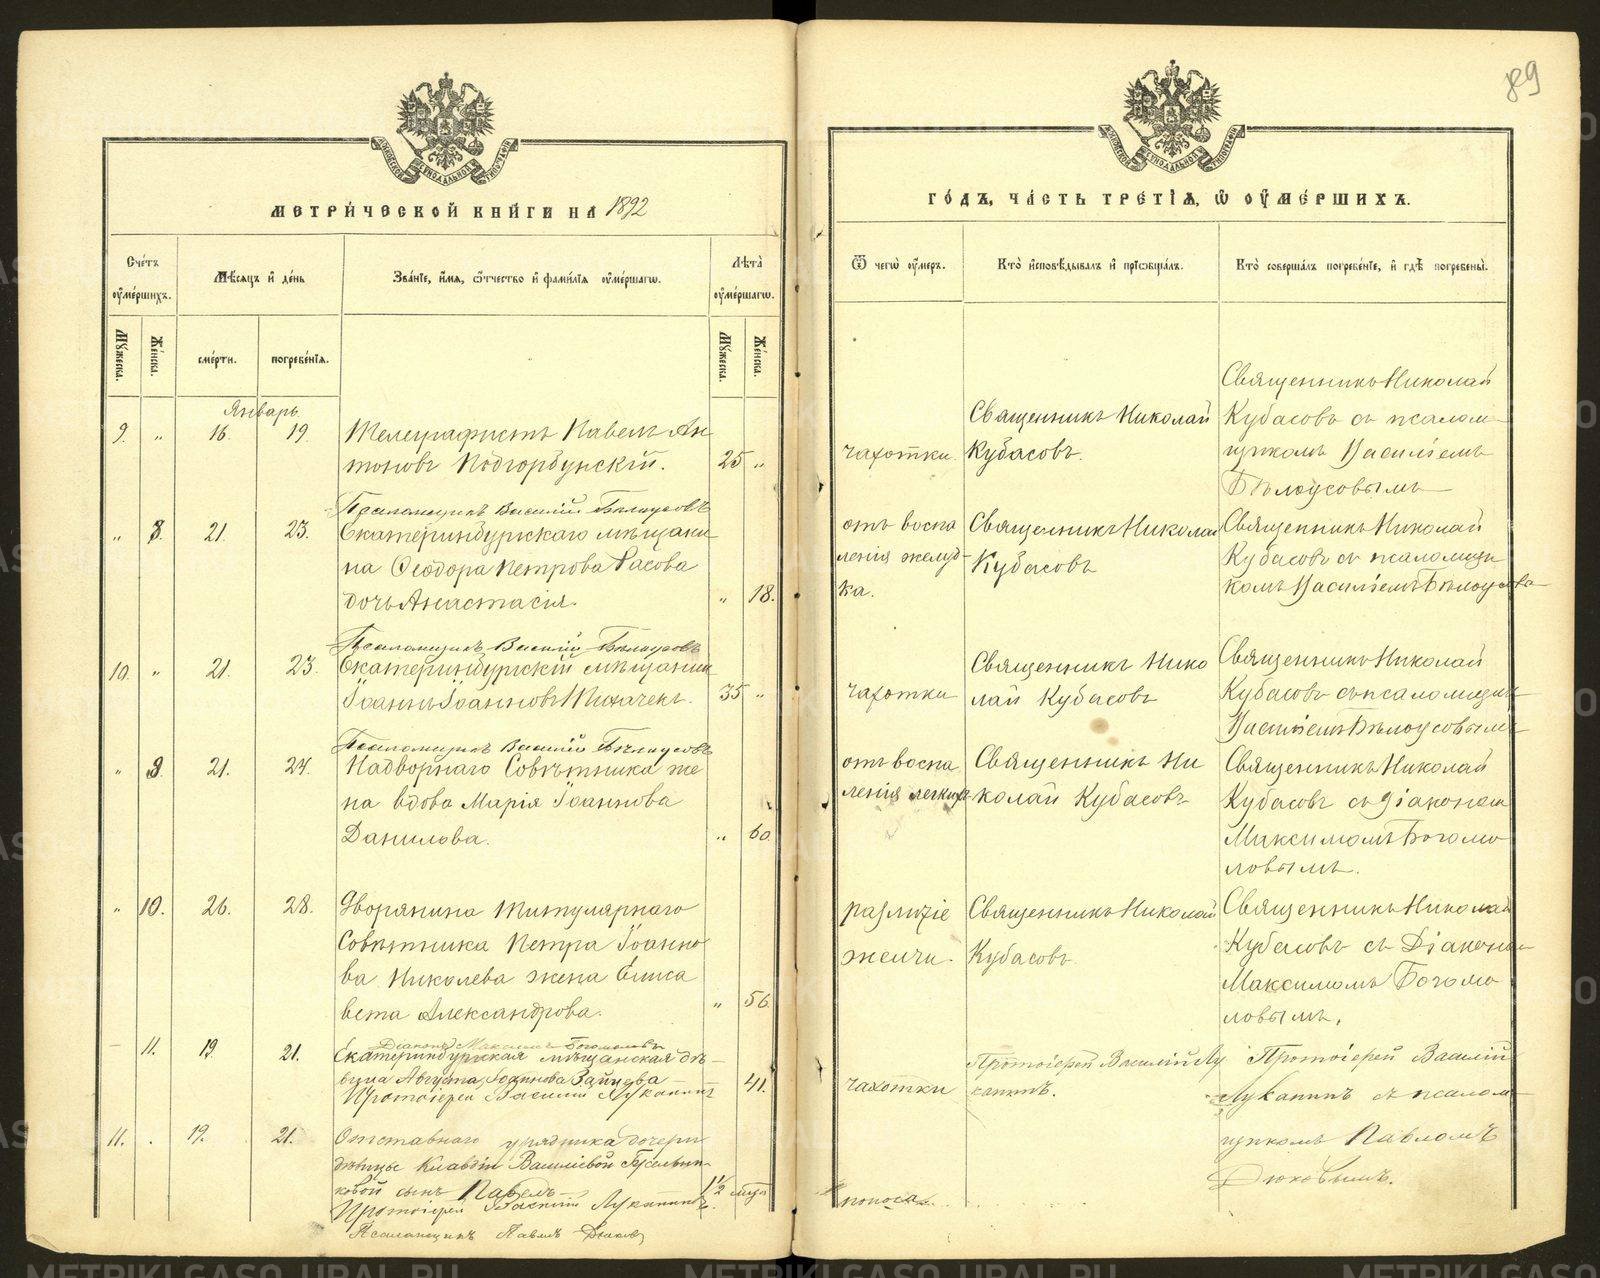 89
МЕТРИ́ЧЕСКОЙ КНИ́ГИ НА 1892
ГО́ДЪ, ЧА́СТЬ ТРЕ́ТІѦ, Ѿ ОУ҆МЕ́РШИХЪ.
Сче́тъ оу҆ме́ршихъ.
Мѣ́сяцъ и҆ де́нь
Зва́нїе, и҆́мя, ѻ҆́тчество и҆ фами́лїя оу҆ме́ршагѡ.
Лѣ́та оу҆ме́ршагѡ.
Му́жеска.
Же́нска.
сме́рти.
погребе́нїя.
Му́жеска.
Же́нска.
Ѿ чегѡ̀ оу҆́меръ.
Кто̀ и҆сповѣ́дывалъ и҆ прїѡбща́лъ.
Кто̀ соверша́лъ погребе́нїе, и҆ гдѣ̀ погребены̀.
Январь
9. „ 16. 19. Телеграфистъ Павелъ Ан
тоновъ Подгорбунскій. 25 „
чахотки.
Священникъ Николай
Кубасовъ.
Священникъ Николай
Кубасовъ съ псалом-
щикомъ Василіемъ
Бѣлоусовымъ
Псаломщикъ Василій Бѣлоусовъ
„ 8. 21. 23. Екатеринбургскаго мѣщани-
на Ѳеодора Петрова
дочь Анастасія. „ 18.
отъ воспа
ленія желуд-
ка.
Священникъ Николай
Кубасовъ
Священникъ Николай
Кубасовъ съ псаломщи
комъ Василіемъ Бѣлоусова
Псаломщикъ Василій Бѣлоусовъ
10. „ 21. 23. Екатеринбургскій мѣщанин
Іоаннъ Іоанновъ 35 „
чахотки
Священникъ Нико
лай Кубасовъ
Священникъ Николай
Кубасовъ съ псаломщик
Василіемъ Бѣлоусовымъ
Псаломщикъ Василій Бѣлоусовъ
„ 9. 21. 24. Надворнаго Совѣтника же
на вдова Марія Іоаннова
Данилова. „ 60.
отъ воспа
ленія легкихъ
Священникъ Ни
колай Кубасовъ
Священникъ Николай
Кубасовъ съ діакономъ
Максимомъ Богомо
ловымъ.
„ 10. 26. 28. Дворянина Титулярнаго
Совѣтника Петра Іоанно
ва Николева жена Елиса
вета Александрова. „ 56.
разлитіе
желчи.
Священникъ Николай
Кубасовъ
Священникъ Николай
Кубасовъ съ Діакономъ
Максимомъ Богомо
ловымъ.
Діаконъ Максимъ Богомоловъ
11. 19. 21. Екатеринбургская мѣщанская дѣ-
вица Августа Іоаннова Зайцева 41.
Протоіерей Василій Луканинъ
чахотки
Протоіерей Василій Лу
канинъ.
Протоіерей Василій
Луканинъ съ псалом-
щикомъ Павломъ
Дюковымъ.
11. . 19. 21. Отставнаго урядника дочери
дѣвицы Клавдіи Василіевой
ковой сынъ Павелъ 1½ мѣс.
поноса
Протоіерей Василій Луканинъ
Псаломщикъ Павелъ Дюковъ